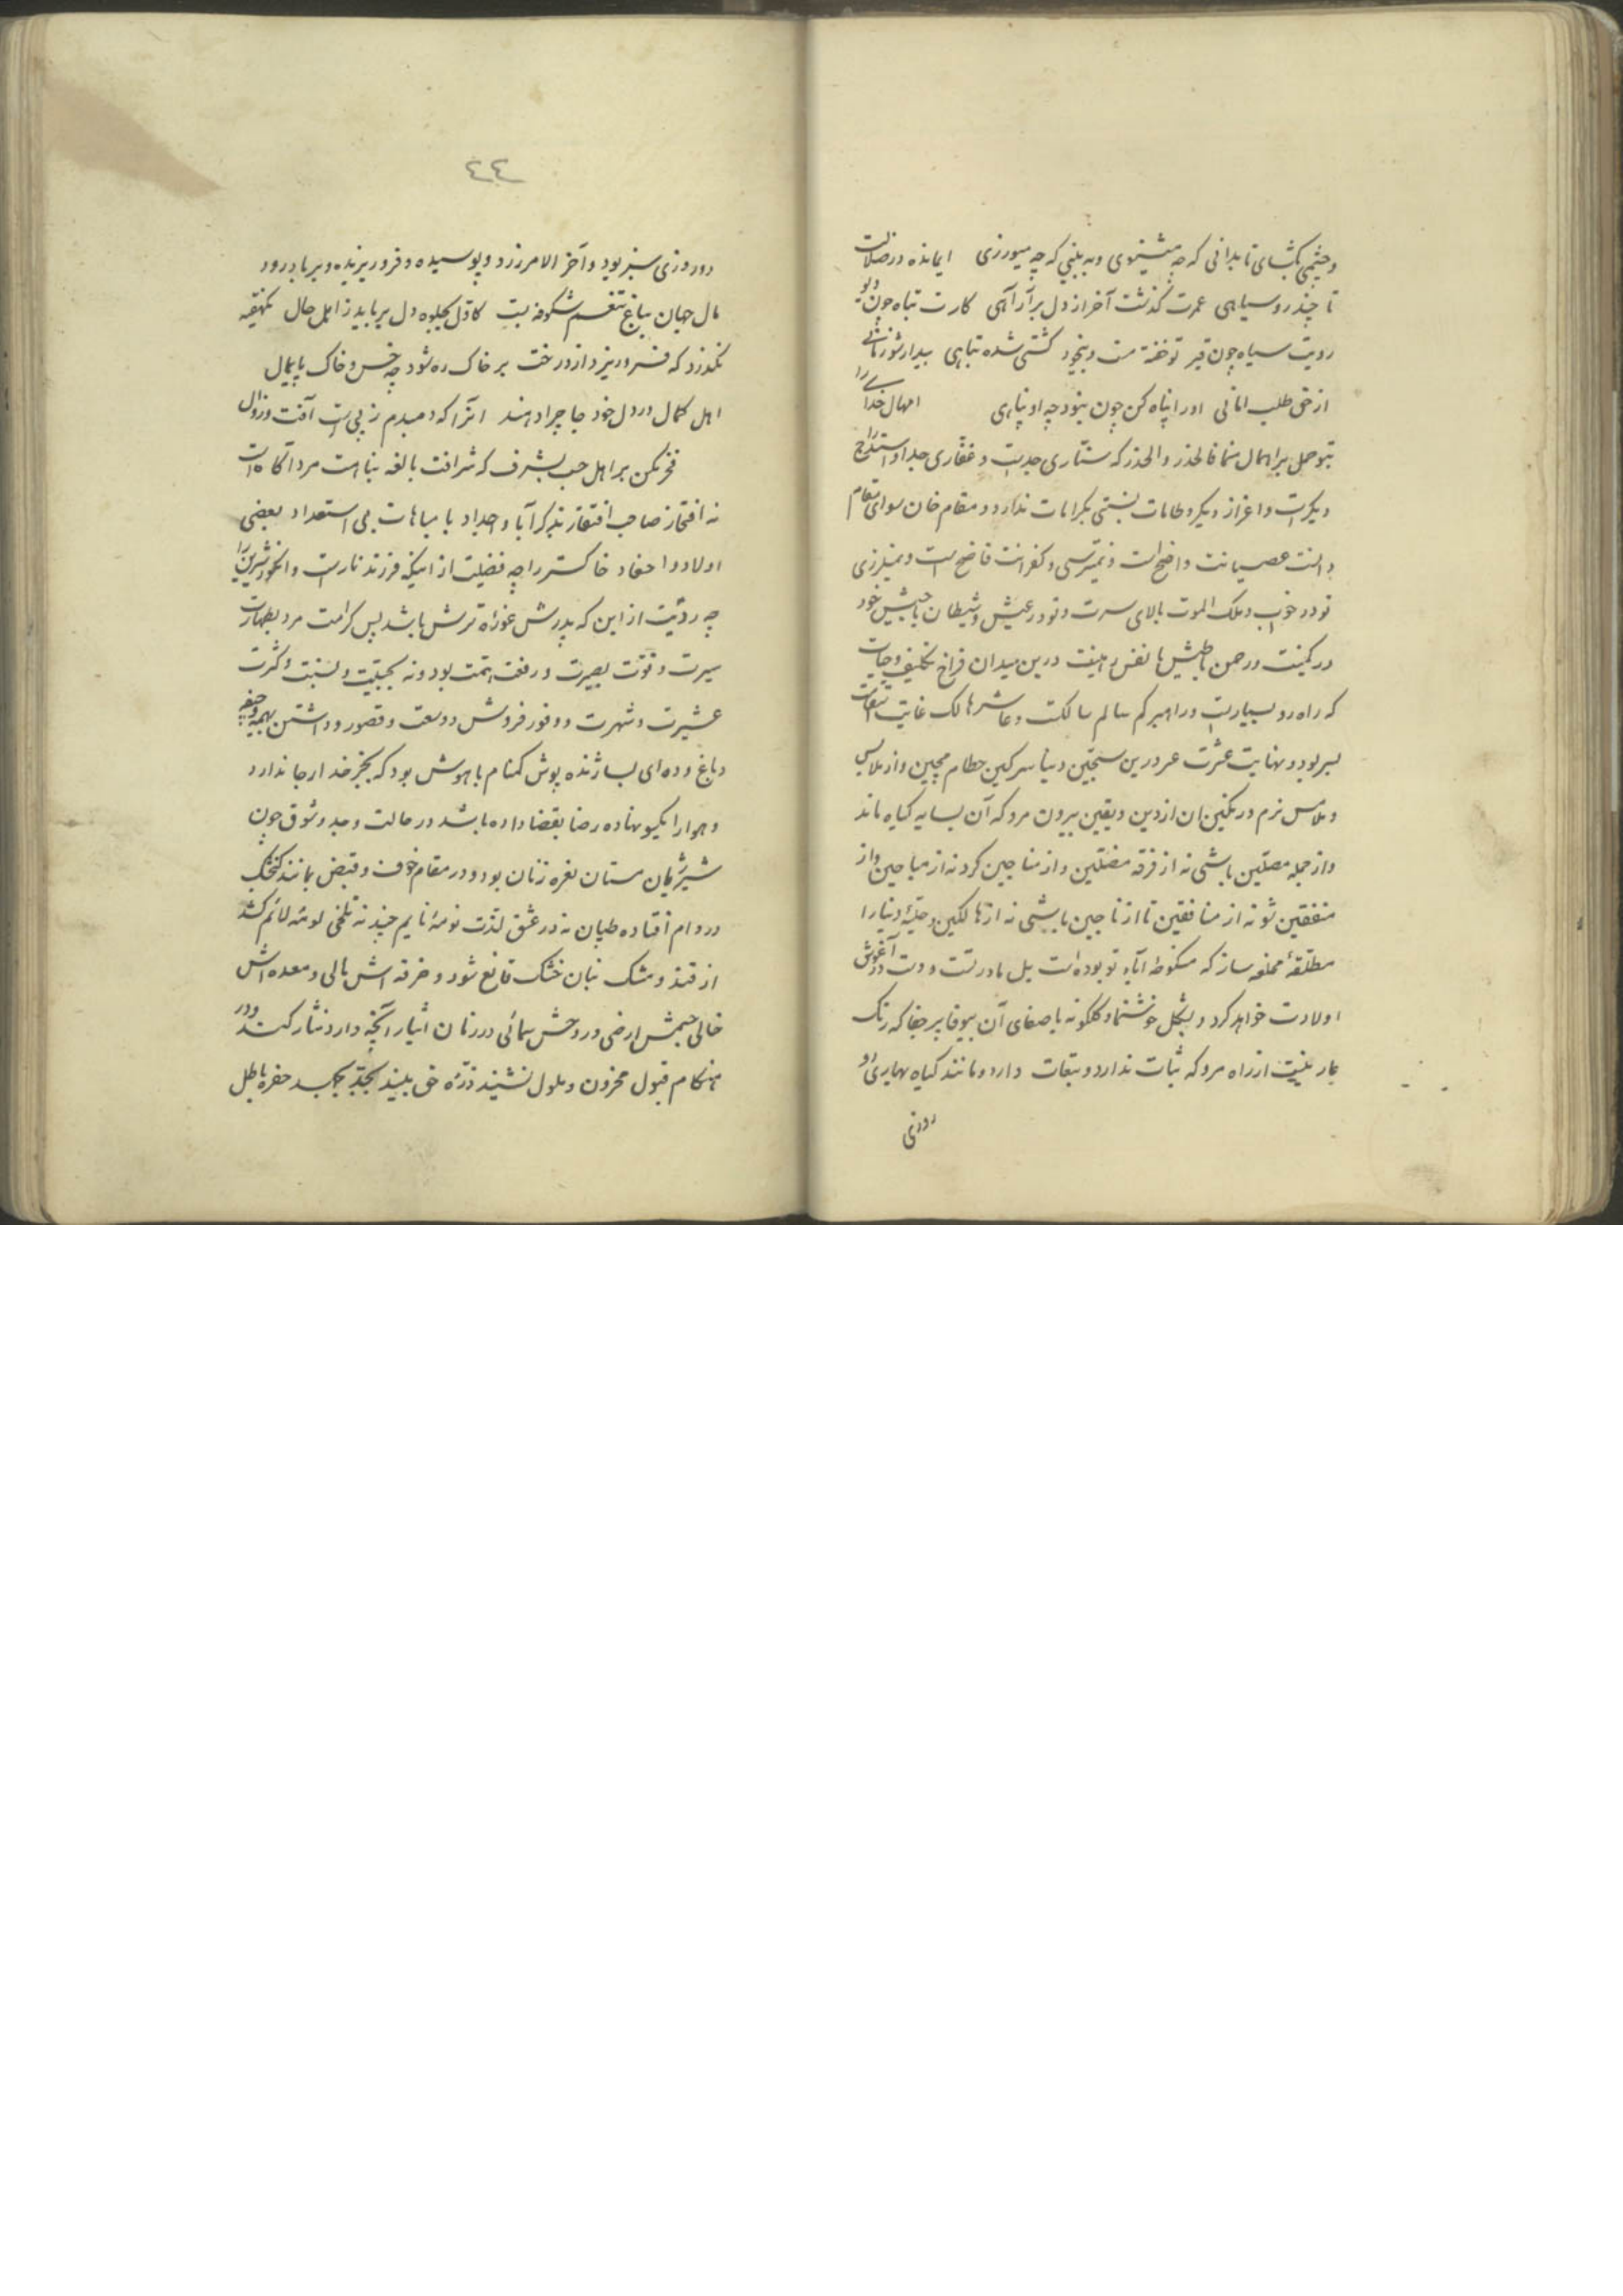 و چشمی بگشای تا بدانی که چه میشنوی و به بینی که چه میورزی ایمانده در ضلالت
تا چند رو سیاهی عمرت گذشت آخر از دل برآر آهی کارت تباه چون دیو
رویت سیاه چون قیر تو خفته مست و بیخود کشتی شده تباهی بیدار شو زمانی
از حق طلب امانی او را پناه کن چون نبود چه او پناهی امهال خدای را
تو حمل بر اهمال منما فالحذر والحذر که ستاری جدیست و غفاری جدا و استدراج
دیگرست و اعزاز دیگر و طامات نسبتی بکرامات ندارد و مقام خان سوای مقام
دانست عصیانت واضح است و نمیترسی و کفرانت فاضح است و نمیلرزی
تو در خوب و ملک الموت بالای سرت و تو در عیش و شیطان با جیش خود
در کمینت و رحمن با طیش با نفس رهینت درین میدان فراخ تکلیف و حیات
که راه رو بسیارست و راهبر کم سالم سالکست و عاشر هالک غایت
بسر بود و نهایت عشرت عسر درین سجین دنیا سرگین حطام مچین و از ملابس
و ملامس نرم در مکین ان از دین و یقین بیرون مرو که آن بسایه گیاه ماند
و از جمله مصلین باشی نه از فرقه مضلین و از مناجین گرد نه از مباحین و از
منفقین شو نه از منافقین تا از ناجین باشی نه از هالکین و حلیهٔ دنیا را
مطلقهٔ مختلعه ساز که منکوحه آباء تو بوده است بل مادر تست و دست در آغوش
اولادت خواهد کرد و بشکل خوشنما و گلگونه با صفای آن بیوفا پر جفا که رنگ
عاریتیست از راه مرو که ثبات ندارد و تبعات دارد و مانند گیاه بهاری دو
روزی
٤٤
دو روزی سبز بود و آخر الامر زرد و پوسیده و فرو ریزیده و بر باد رود
مال جهان بباغ تنعم شکوفه ایست کاول بجلوه دل برباید ز اهل حال یکهفته
نگذرد که فرو ریزد از درخت بر خاک ره شود چه خس و خاک پایمال
اهل کمال در دل خود جا چرا دهند آنرا که دمبدم ز پی است آفت و زوال
فخر مکن بر اهل حسب بشرف که شرافت بالغه بنباهت مرد آگاه است
نه افتخار صاحب افتقار بذکر آبا و اجداد با مباهات بی استعداد ببعضی
اولاد و احفاد خاکستر را چه فضیلت از اینکه فرزند نارست و انگور شیرین را
چه ردئیت از این که پدرش غوزه ترش باشد پس کرامت مرد بطهارت
سیرت و قوت بصیرت و رفعت همت بود و نه بجبلیت و نسبت و کثرت
عشیرت و شهرت و وفور فروش و وسعت و قصور و داشتن بهیمه و جیفه
و باغ و ده ای بسا ژنده پوش گمنام با هوش بود که بجز خدا رجا ندارد
و هوا را یکسو نهاده رضا بقضا داده باشد در حالت وجد و شوق چون
شیر ژیان مستان نعره زنان بود و در مقام خوف و قبض مانند گنجشک
در دام افتاده طپان نه در عشق لذت نومهٔ نایم چیند نه تلخی لومه لائم کشد
از قند و مشک بنان خشک قانع شود و خرقه اش بالی و معده اش
خالی جسمش ارضی و روحش سمائی در زمان ایثار آنچه دارد نثار کند و در
هنگام قبول محزون و ملول نشیند ذره حق بیند بجد بچسبد حفره باطل